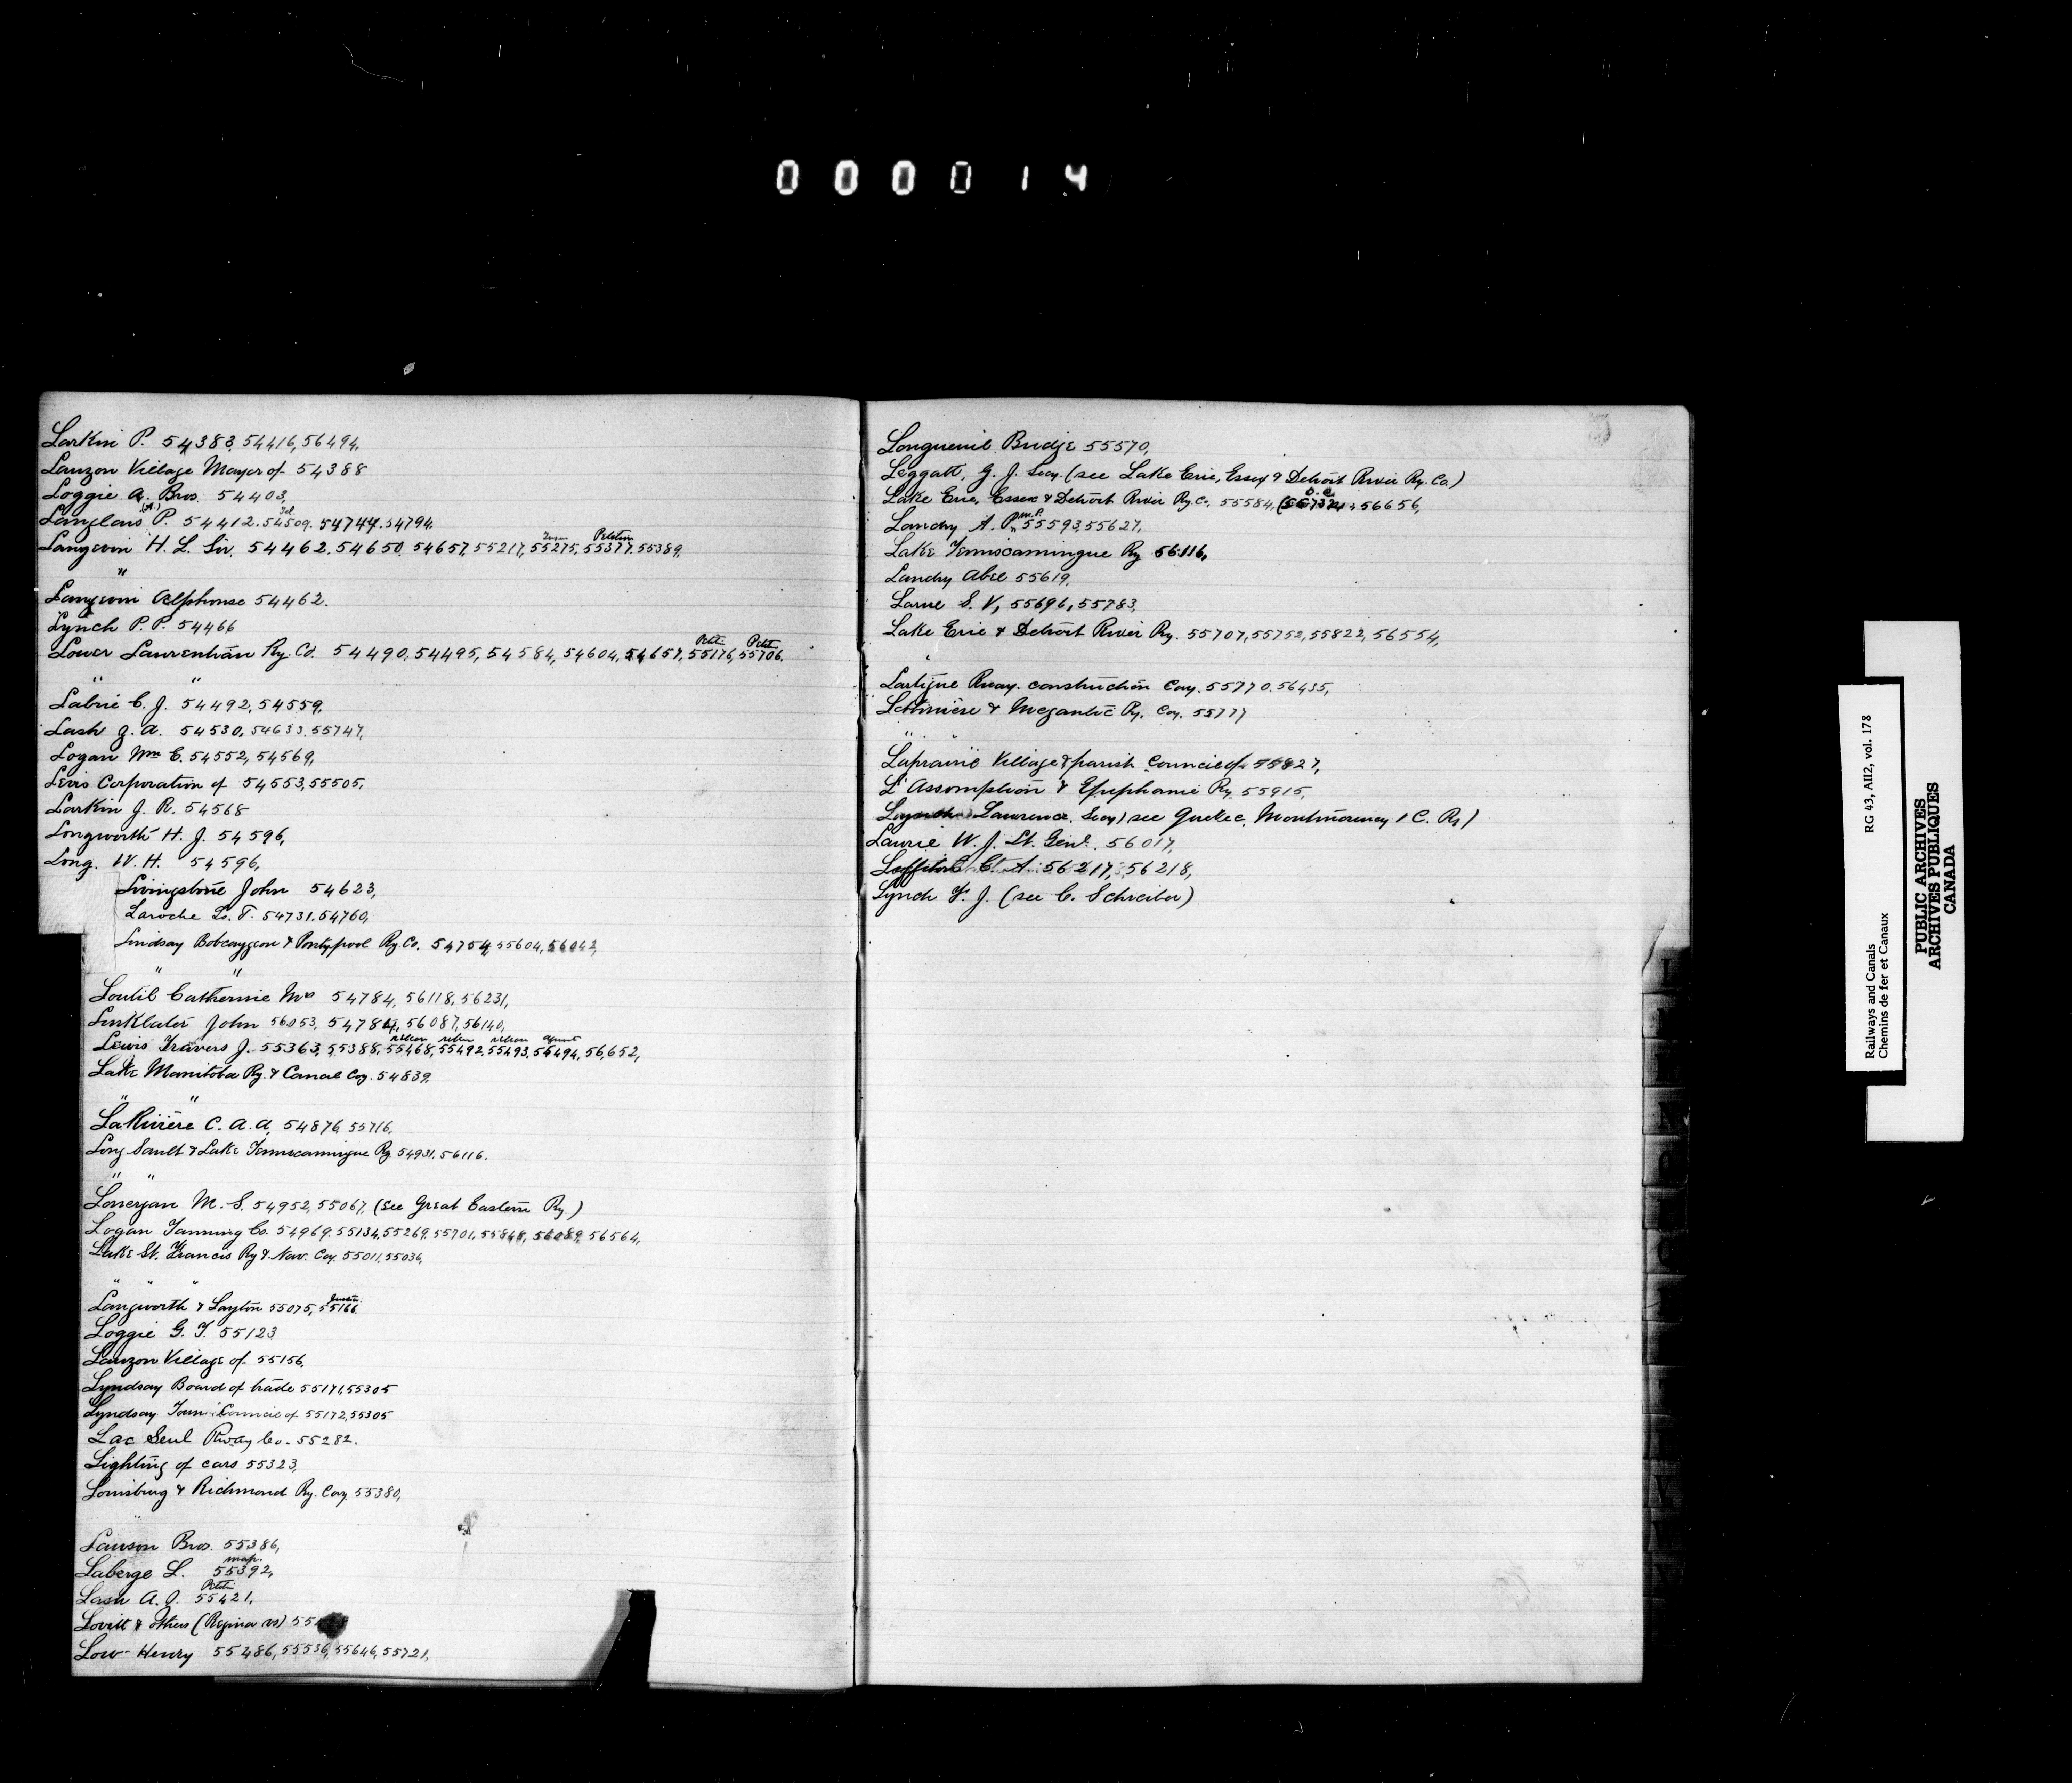 000014
Larkin P. 54383, 54416, 56494,
Lauzon Village Mayor of 54388
Loggie A. Bros. 54403,
Langlais P. 54412. 54509. 54744. 54794.
Langevin H. L. Sir, 54462. 54650. 54657, 55217, 55275, 55377, 55389,
" 
Langevin Alphonse 54462.
Lynch P. P. 54466
Petitn Petitn
Lower Laurentian Ry. Co. 54490, 54495, 54584, 54604, 54657, 55176, 55706.
" "
Labrie C. J. 54492, 54559,
Lash Z. A. 54530, 54633, 55747,
Logan Wm C. 54552, 54569,
Levis Corporation of 54553, 55505,
Larkin J. R. 54568
Longworth H. J. 54596,
Long. W. H. 54596,
Livingstone John 54623,
Laroche Ls. T. 54731. 54760,
Lindsay Bobcaygeon & Pontypool Ry. Co. 54754, 55604, 56042,
" "
Loutil Catherine Mrs 54784, 56118, 56231,
Linklater John 56053, 54784, 56087, 56140,
Lewis Travers J. 55363, 55388, 55468, 55492, 55493, 55494, 56,652,
Lake Manitoba Ry. & Canal Coy. 54839,
" "
LaRivière C. A. A. 54876, 55716,
Long Sault & Lake Temiscamingue Ry. 54931, 56116.
" "
Lonergan M. S. 54952, 55067, (see Great Eastern Ry.)
Logan Tanning Co. 54969, 55134, 55269, 55701, 55848, 56089, 56564,
Lake St. Francis Ry & Nav. Coy. 55011, 55036,
" " "
Langworth & Layton 55075, 55166.
Loggie G. T. 55123
Lauzon Village of 55156,
Lyndsay Board of trade 55171, 55305
Lyndsay Town Council of 55172, 55305
Lac Seul Rway Co. 55282.
Lighting of cars 55323,
Louisburg & Richmond Ry. Coy. 55380,
Lawson Bros. 55386,
map.
Laberge L. 55392,
Petitn
Lash A. J. 55421,
Lovitt & others (Regina vs)
Low Henry 55486, 55536, 55646, 55721,
Longueuil Bridge 55570,
Leggatt, G. J. Secy. (see Lake Erie, Essex & Detroit River Ry. Co.)
O. C.
Lake Erie, Essex & Detroit River Ry. Co. 55584, 56656,
Landry A. P. M.P. 55593, 55627,
Lake Temiscamingue Ry 56116,
Landry Abel 55619,
Larue S. V, 55696, 55783,
Lake Erie & Detroit River Ry. 55707, 55752, 55822, 56554,
"
Lartigue Rway. construction Coy. 55770. 56435,
Lotbinière & Megantic Ry. Coy. 55777
" "
Laprairie Village & parish Council of 55827,
L'Assomption & Epiphanie Ry. 55915,
Lawrence, Secy) see Quebec, Montmorency & C. Ry)
Laurie W. J. Lt. Genl. 56017,
C. A. 56217, 56218,
Lynch F. J. (see C. Schreiber)
Railways and Canals RG 43, AII2, vol. 178
Chemins de fer et Canaux
PUBLIC ARCHIVES
ARCHIVES PUBLIQUES
CANADA